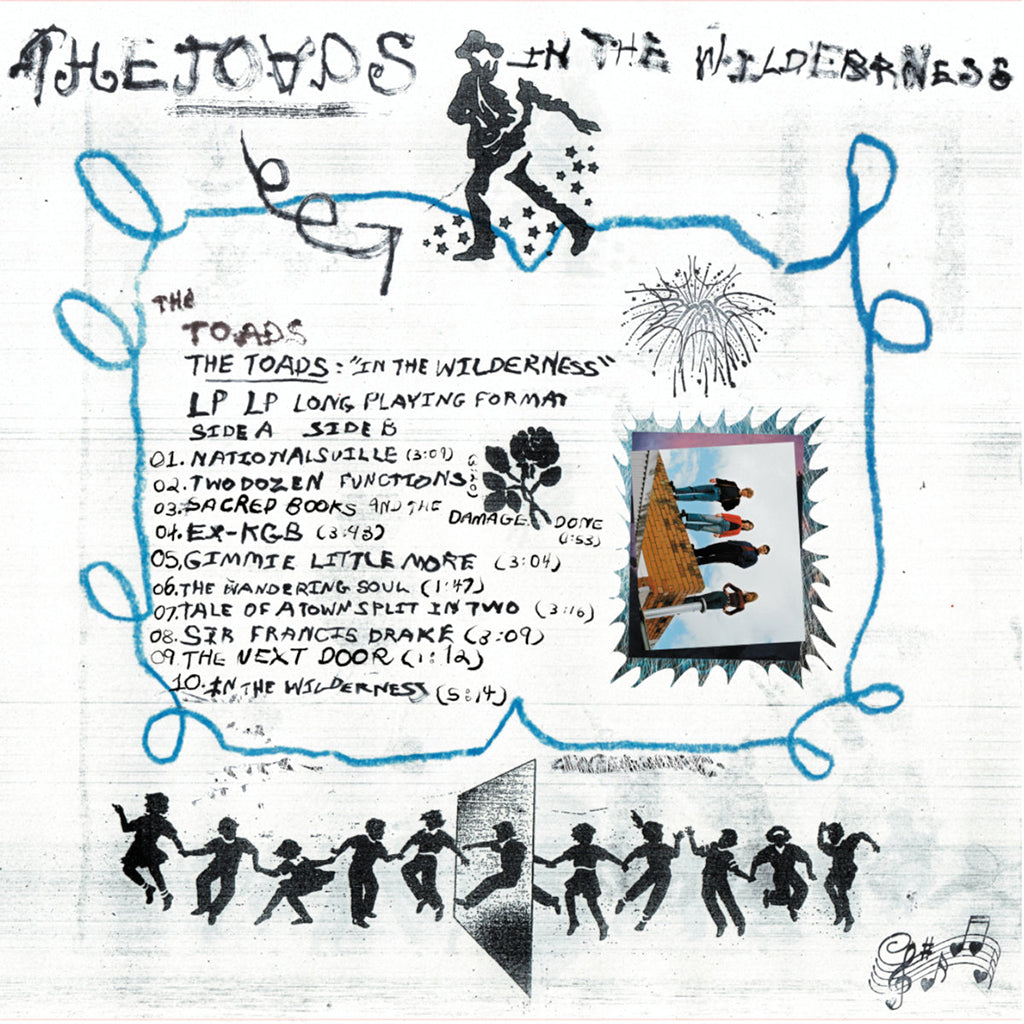 THE TOADS IN THE WILDERRNESS
THE
TOADS
THE TOADS: "IN THE WILDERNESS"
LP LP LONG PLAYING FORMAT
SIDE A SIDE B
01. NATIONALSVILLE (3:09)
02. TWO DOZEN FUNCTIONS
03. SACRED BOOKS AND THE DAMAGE DONE (1:53)
04. EX-KGB (3:43)
05. GIMMIE LITTLE MORE (3:04)
06. THE WANDERING SOUL (1:47)
07. TALE OF A TOWN SPLIT IN TWO (3:16)
08. SIR FRANCIS DRAKE (3:09)
09. THE NEXT DOOR (1:12)
10. IN THE WILDERNESS (5:14)